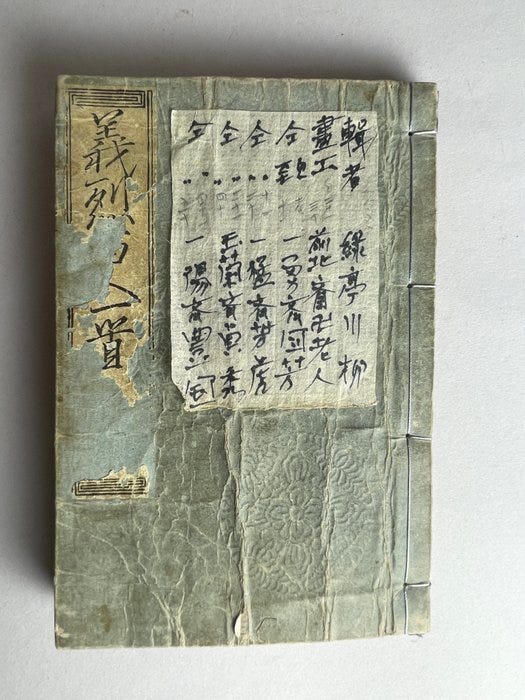 輯者 緑亭川柳
畫工 前北齋卍老人
仝 一勇齋国芳
仝 〃 一猛齋芳虎
仝 〃 玉蘭齋貞秀
仝 〃 一陽齋豊国
義烈百人一首